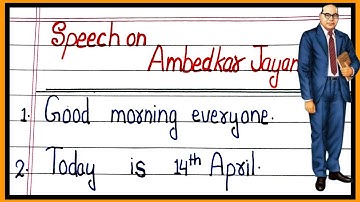 Speech on
Ambedkar Jayan
1. Good morning everyone.
2. Today is 14th April.